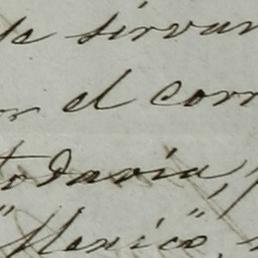 se sirvan
el corr
todavia,
"Mexico",